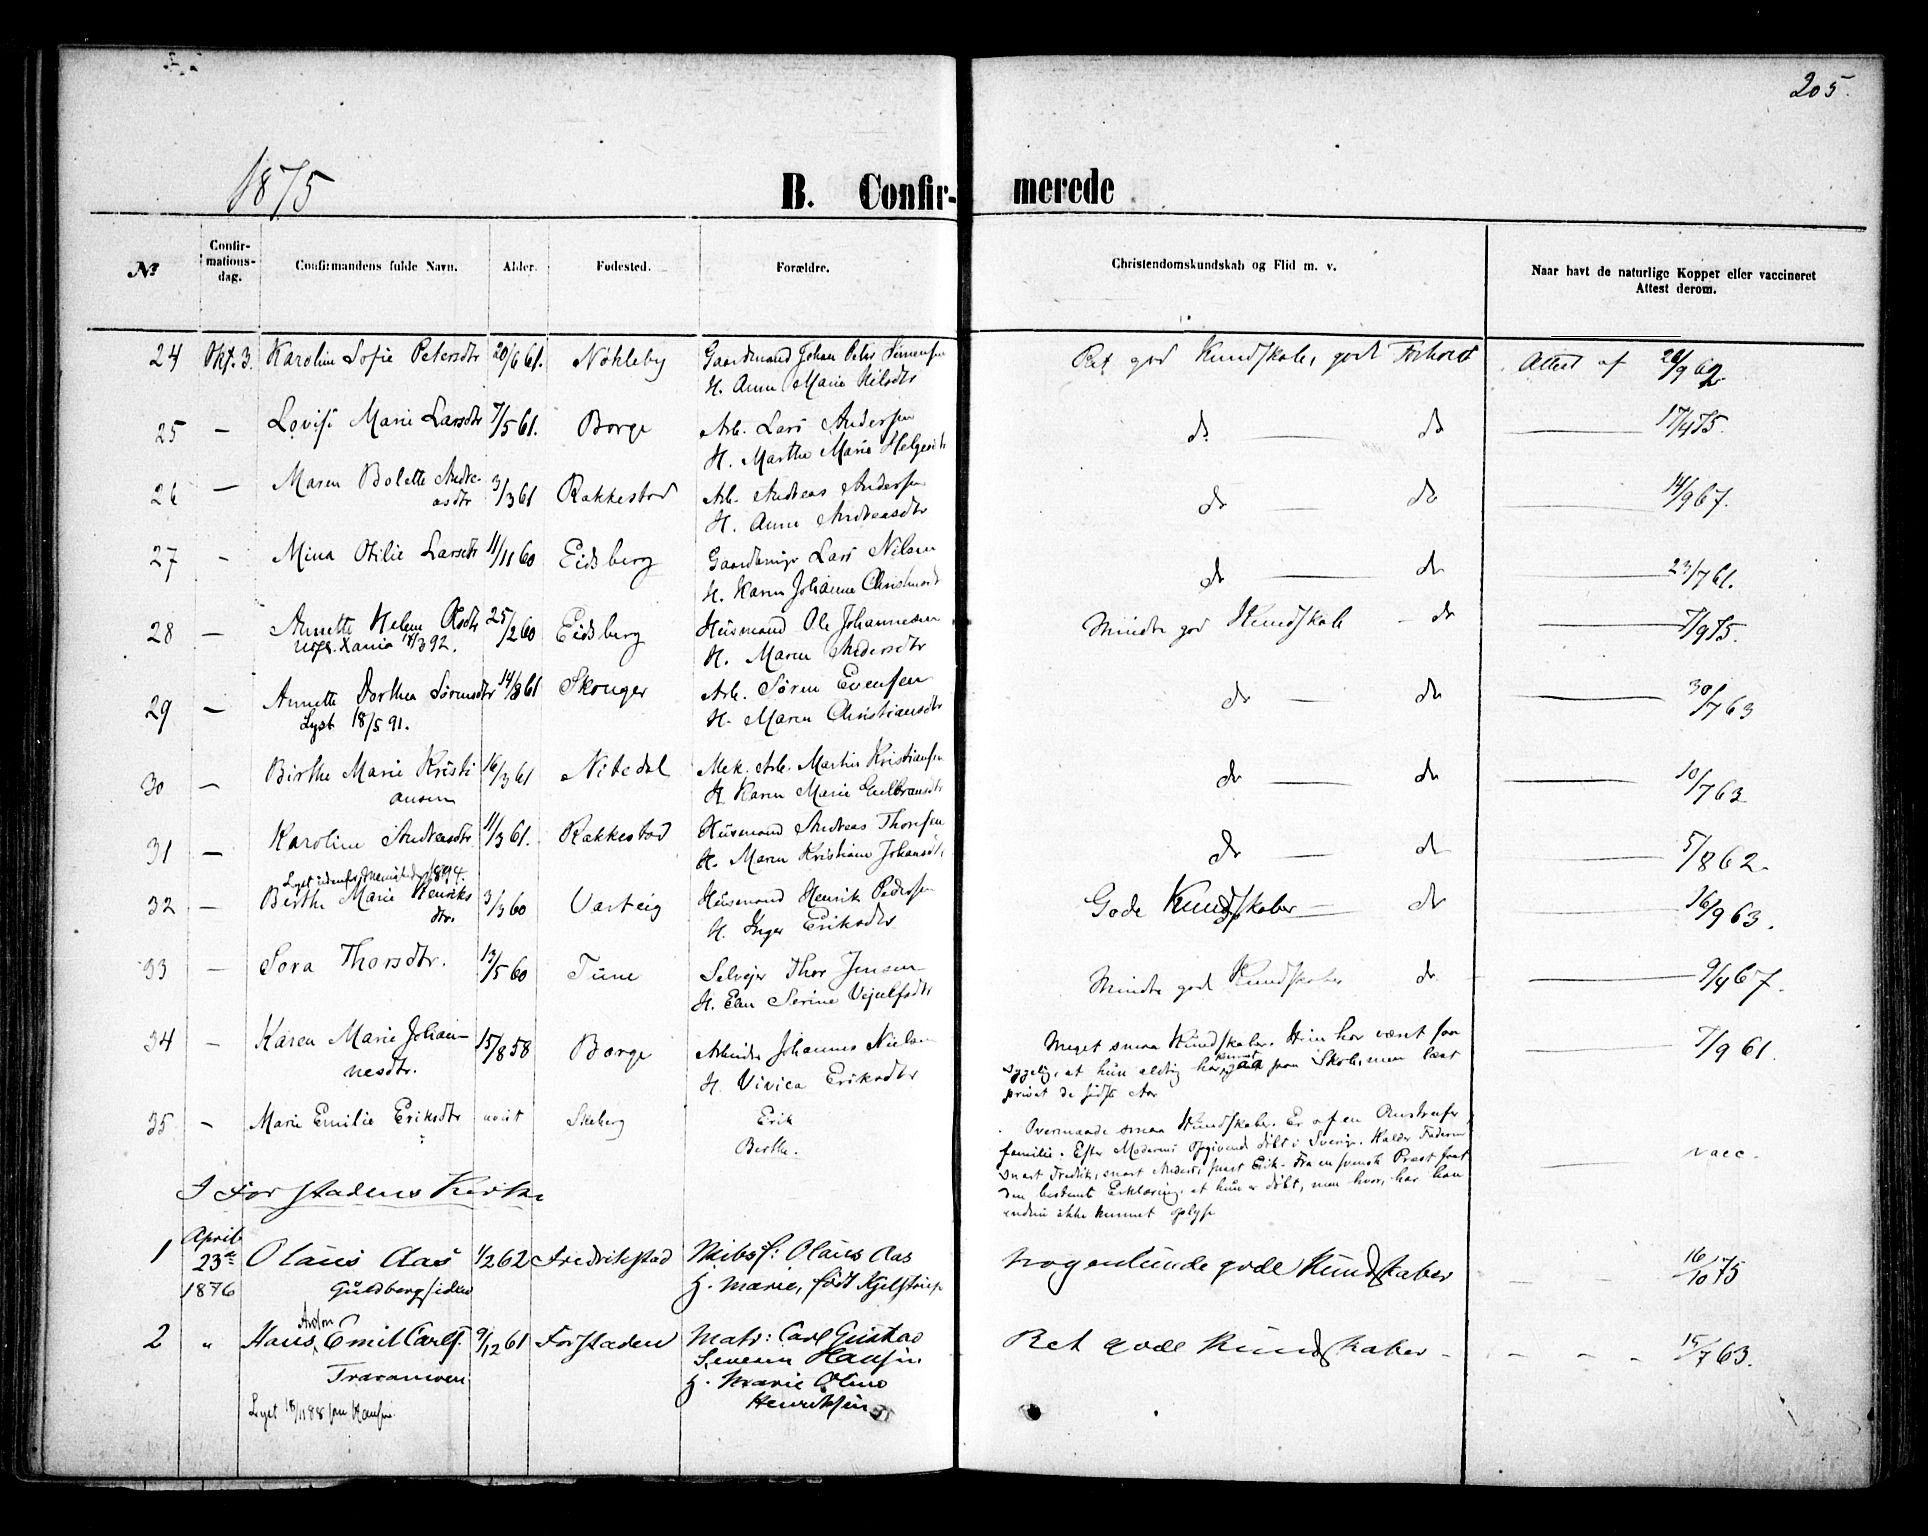 205.
1875
B. Confir-merede
No
Confir-
mations-
dag.
Confirmandens fulde Navn.
Alder.
Fødested.
Forældre.
Christendomskundskab og Flid m. v.
Naar havt de naturlige Kopper eller vaccineret
Attest derom.
24 Okt. 3. Karoline Sofie Petersdtr 20/6 61. Nøkleby Gaardmand Johan Peter Simensen Ret god Kundskab, godt Forhold Attest af 20/9 62
H. Anne Marie Nilsdtr
25 — Lovise Marie Larsdtr 7/5 61. Borge Arb. Lars Andersen do — do — 17/4 75.
H. Marthe Marie Helgesdtr
26 — Maren Bolette Andre- 3/3 61 Rakkestad Arb. Andreas Andersen do — do — 14/9 67.
asdtr H. Anne Andreasdtr
27 - Mina Otilie Larsdtr 11/11 60 Eidsberg Lars Nilsen do — do — 23/7 61.
H. Karen Johanne
28 — Annette Helene Olsdtr 25/2 60 Eidsberg Husmand Ole Johannesen Mindre god Kundskab - do — 7/9 75.
18/3 92. H. Maren Andersdtr
29 — Annette Dorthea Sørensdtr 14/8 61 Skouger Arb. Søren Evensen do — do — 30/7 63
Lyst 18/5 91. H. Maren Christiansdtr
30 — Birthe Marie Kristi 16/3 61 Nitedal Mek. Arb. Martin Kristiansen do — do — 10/7 63
ansen H. Karen Marie Gulbrandsdtr
31 — Karoline Andreasdtr 11/3 61. Rakkestad Husmand Andreas Thoresen do — do 5/8 62.
H. Maren Kristiane Johansdtr
Lyst 1894.
32 — Birthe Marie Henriks 3/3 60 Varteig Husmand Henrik Pedersen Gode Kundskaber — do 16/9 63.
dtr. H. Inger Eriksdtr
33 — Sora Thorsdtr. 13/5 60 Tune Selvejer Thor Jensen Mindre god Kundskaber do — 9/9 67.
H. Serine
34 - Karen Marie Johan- 15/8 58 Borge Arbeider Johannes Nielsen Meget smaa Kundskaber. Hun har været saa — 7/9 61.
nesdtr. H. Vivica Eriksdtr sygelig, at hun aldrig har kunnet gaa paa Skole, men læst
privat de sidste Aar
35 - Marie Emilie Eriksdtr uvist Skeberg Erik Overmaade smaa Kundskaber. Er af en — vacc.
Berthe. familie. Efter Moderens Opgivende døbt i Sverige. Kalder Faderen
snart Fredrik, snart Anders, snart Erik. Fra en svensk Præst faaet
den bestemt Erklæring, at hun er døbt, men hvor, har han
endnu ikke kunnet oplyse
I Forstadens Kirke
April
1 23de Olaus Aas 1/2 62 Fredrikstad Skibsf: Olaus Aas nogenlunde gode Kundskaber — 16/10 75
1876 Guldbergsiden H. Marie, født Kjelstrup
2 " Hans Anton Emil Carlsf. 9/12 61 Forstaden Matr: Carl Gustav Ret gode Kundskaber - - - - 15/7 63.
Traraveien Severin Hansen
H. Marie Oline
Lyst 18/11 88 Hansen Henriksen